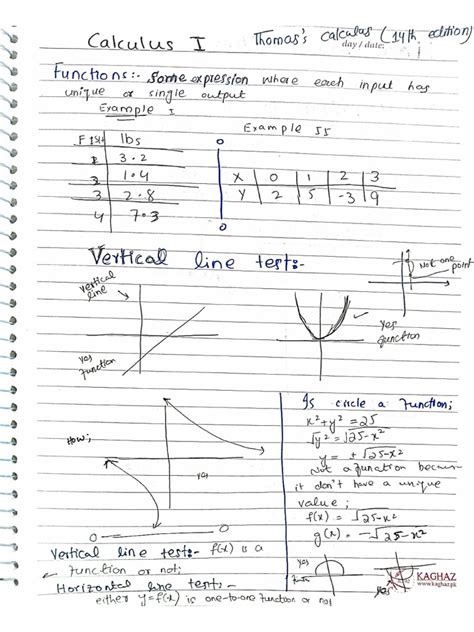 Calculus I
Thomas's calculas (14th edition)
day / date:
Functions:- Some expression where each input has
unique or single output
Example I
Example II
Fish lbs
1 3.2
2 1.4
3 2.8
4 7.3
X 0 1 2 3
Y 2 5 -3 9
Vertical line test:-
Not one point
vertical line
yes function
yes function
Is circle a function;
x²+y² = 25
√y² = √25-x²
y = ± √25-x²
Not a function becaus
it don't have a unique
value;
f(x) = √25-x²
g(x) = -√25-x²
How;
yes
Vertical line test:- f(x) is a
function or not;
Horizontal line test:-
either y=f(x) is one-to-one function or not
yes
yes
KAGHAZ
www.kaghaz.pk